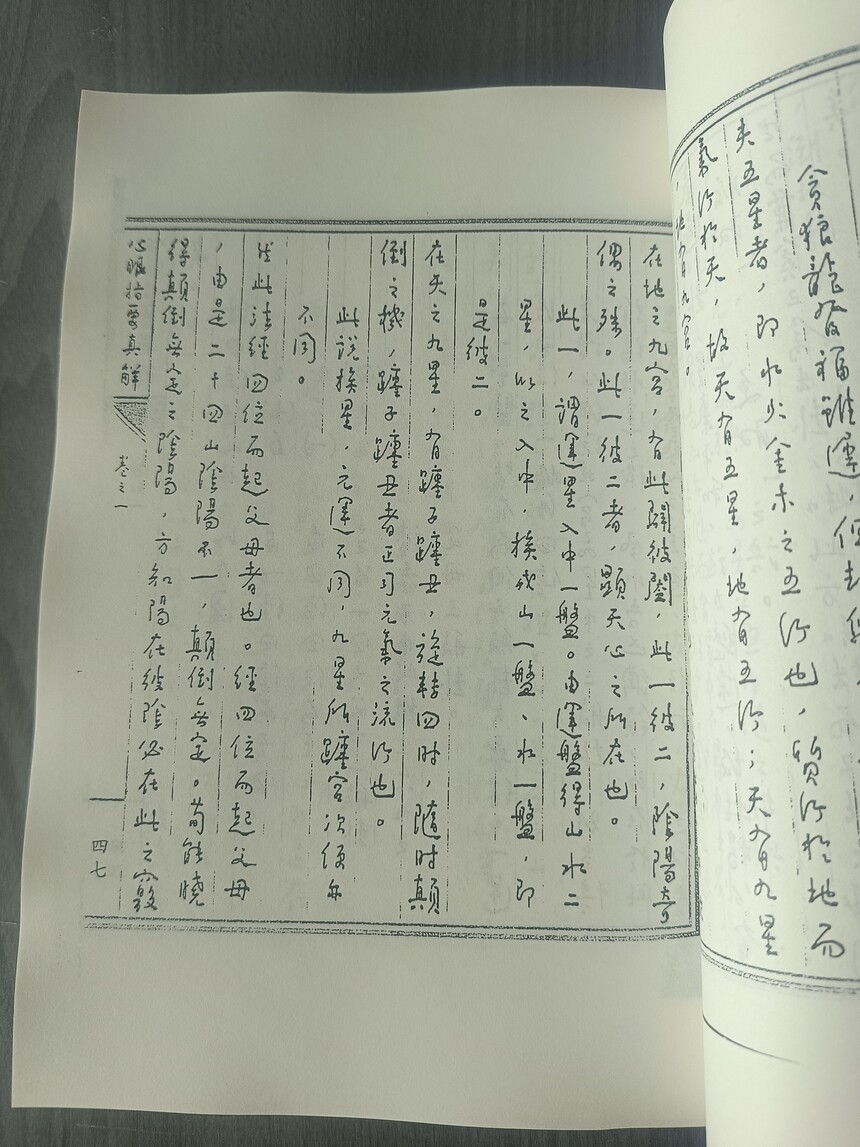 貪狼龍發福雖遲，但
夫五星者，即水火金木之五行也，質行於地而
氣行於天，故天有五星，地有五行；天有九星
，地有九宮。
在地之九宮，有此闢彼闔，此一彼二，陰陽奇
偶之殊。此一彼二者，顯天心之所在也。
此一，謂運星入中一盤。由運盤得山水二
星，以之入中，挨成山一盤、水一盤，即
是彼二。
在天之九星，有躔子躔丑，旋轉四時，隨時顛
倒之機，躔子躔丑者正司元氣之流行也。
此說挨星，元運不同，九星所躔宮次便亦
不同。
此法經四位而起父母者也。經四位而起父母
，由是二十四山陰陽不一，顛倒無定。苟能曉
得顛倒無定之陰陽，方知陽在彼陰必在此之竅
心眼指要真解
卷之一
四七